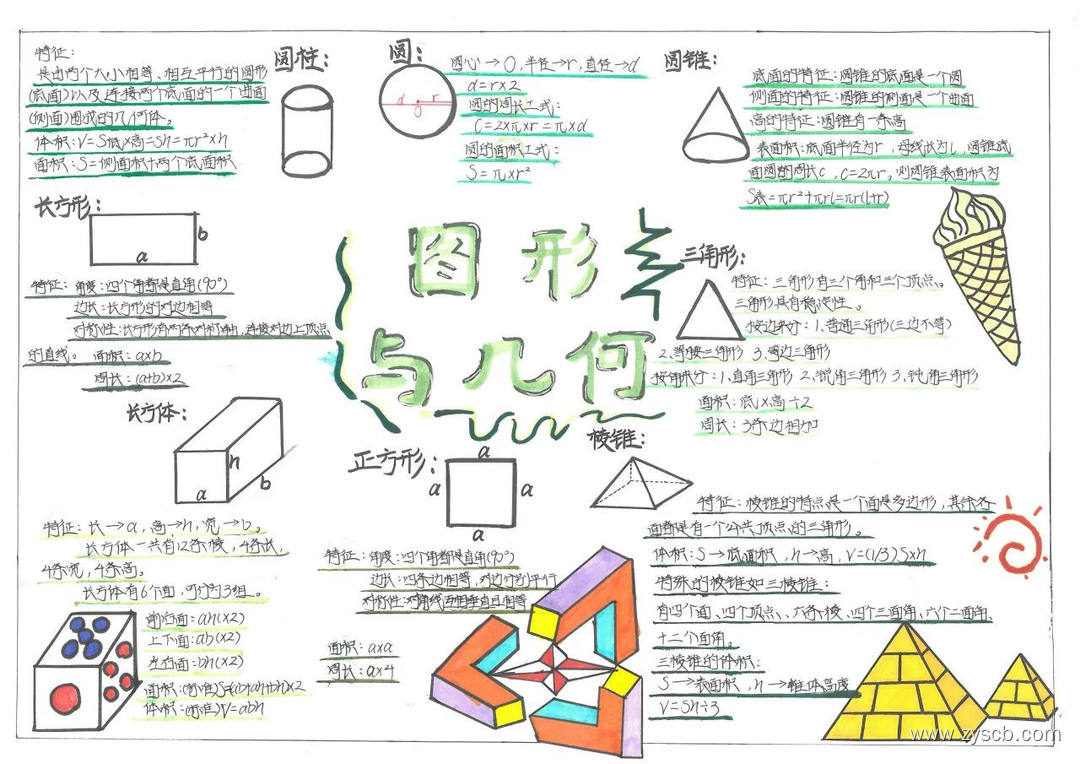 圆柱:
特征:
是由两个大小相等、相互平行的圆形
(底面)以及连接两个底面的一个曲面
(侧面)围成的几何体。
体积:V=S底×高=Sh=πr²×h
面积:S=侧面积+两个底面积
圆:
d r
圆心→O,半径→r,直径→d
d=r×2
圆的周长工式:
C=2×π×r=π×d
圆的面积工式:
S=π×r²
圆锥:
底面的特征:圆锥的底面是一个圆
侧面的特征:圆锥的侧面是一个曲面
高的特征:圆锥有一条高
表面积:底面半径为r,母线长为l,圆锥底
面圆的周长c,c=2πr,则圆锥表面积为
S表=πr²+πrl=πr(l+r)
长方形:
b
a
特征:角度:四个角都是直角(90°)
边长:长方形的对边相等
对称性:长方形有两条对称轴,连接对边上顶点
的直线。面积:a×b
周长:(a+b)×2
图形
与几何
三角形:
特征:三角形有三个角和三个顶点。
三角形具有稳定性。
按边来分:1、普通三角形(三边不等)
2、等腰三角形 3、等边三角形
按角来分:1、直角三角形 2、锐角三角形 3、钝角三角形
面积:底×高÷2
周长:3条边相加
长方体:
h
a
b
特征:长→a,高→h,宽→b。
长方体一共有12条棱,4条长,
4条宽,4条高。
长方体有6个面,可分为3组。
前后面:ah(×2)
上下面:ab(×2)
左右面:bh(×2)
面积:(标准)S=(ab+ah+bh)×2
体积:(标准)V=abh
正方形:
a
a
a
a
特征:角度:四个角都是直角(90°)
边长:四条边相等,对边分别平行
对称性:对角线互相垂直且相等
面积:a×a
周长:a×4
棱锥:
特征:棱锥的特点是一个面是多边形,其余各
面都是有一个公共顶点的三角形。
体积:S→底面积,h→高,V=(1/3)S×h
特殊的棱锥如三棱锥:
有四个面、四个顶点、六条棱、四个三面角、六个二面角、
十二个面角。
三棱锥的体积:
S→表面积,h→椎体高度
V=Sh÷3
www.zyscb.com